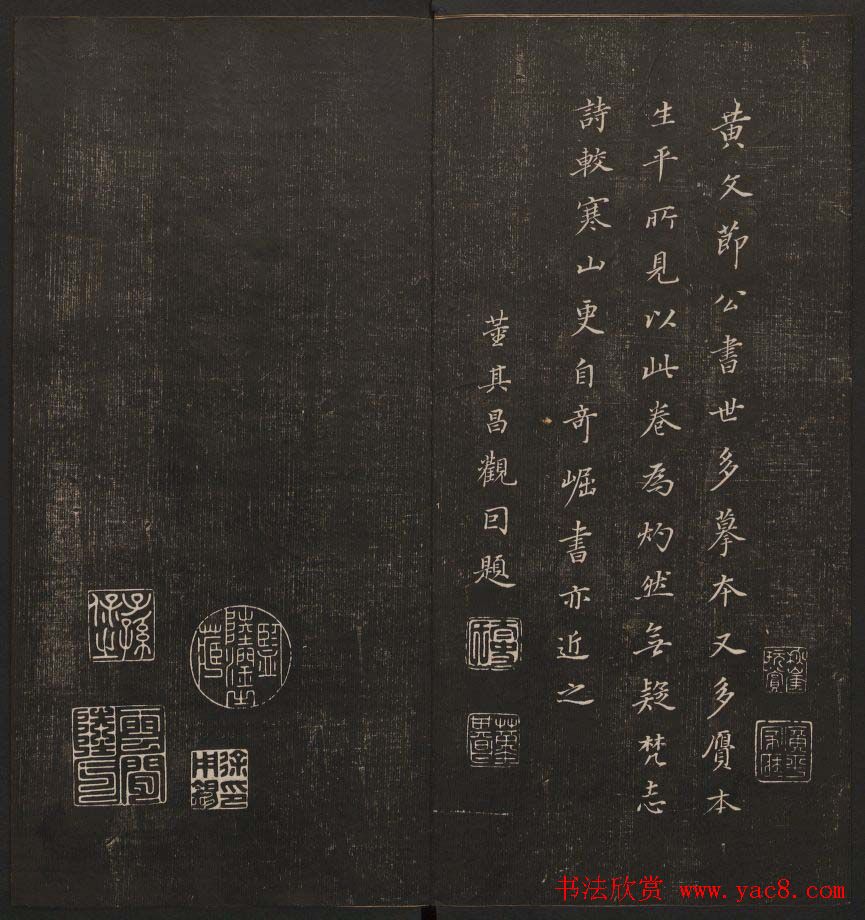 黄文節公書世多摹本又多贋本
生平所見以此卷為灼然無疑梵志
詩較寒山更自奇崛書亦近之
董其昌觀因題
子孫保之
徐用錫印
书法欣赏 www.yac8.com